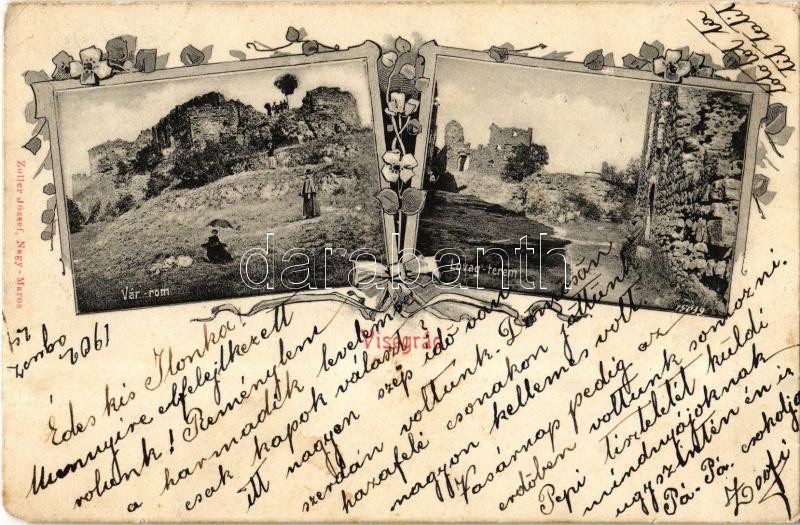 Zoller József, Nagy-Maros
Vár-rom
Lovag-terem
darabanth
Visegrád
1902
Édes kis Ilonka!
Mennyire elfelejtkezett
rólunk! Reménylem
a harmadik levelemre
csak kapok választ?
Itt nagyon szép idő van
szerdán voltunk. Dömösön
hazafelé csónakon jöttünk
nagyon kellemes volt.
Vasárnap pedig az
erdőben voltunk somozni.
Pepi tiszteletét küldi
mindnyájoknak
ugyszintén én is
Pá-Pá. csokolja
Zsofi